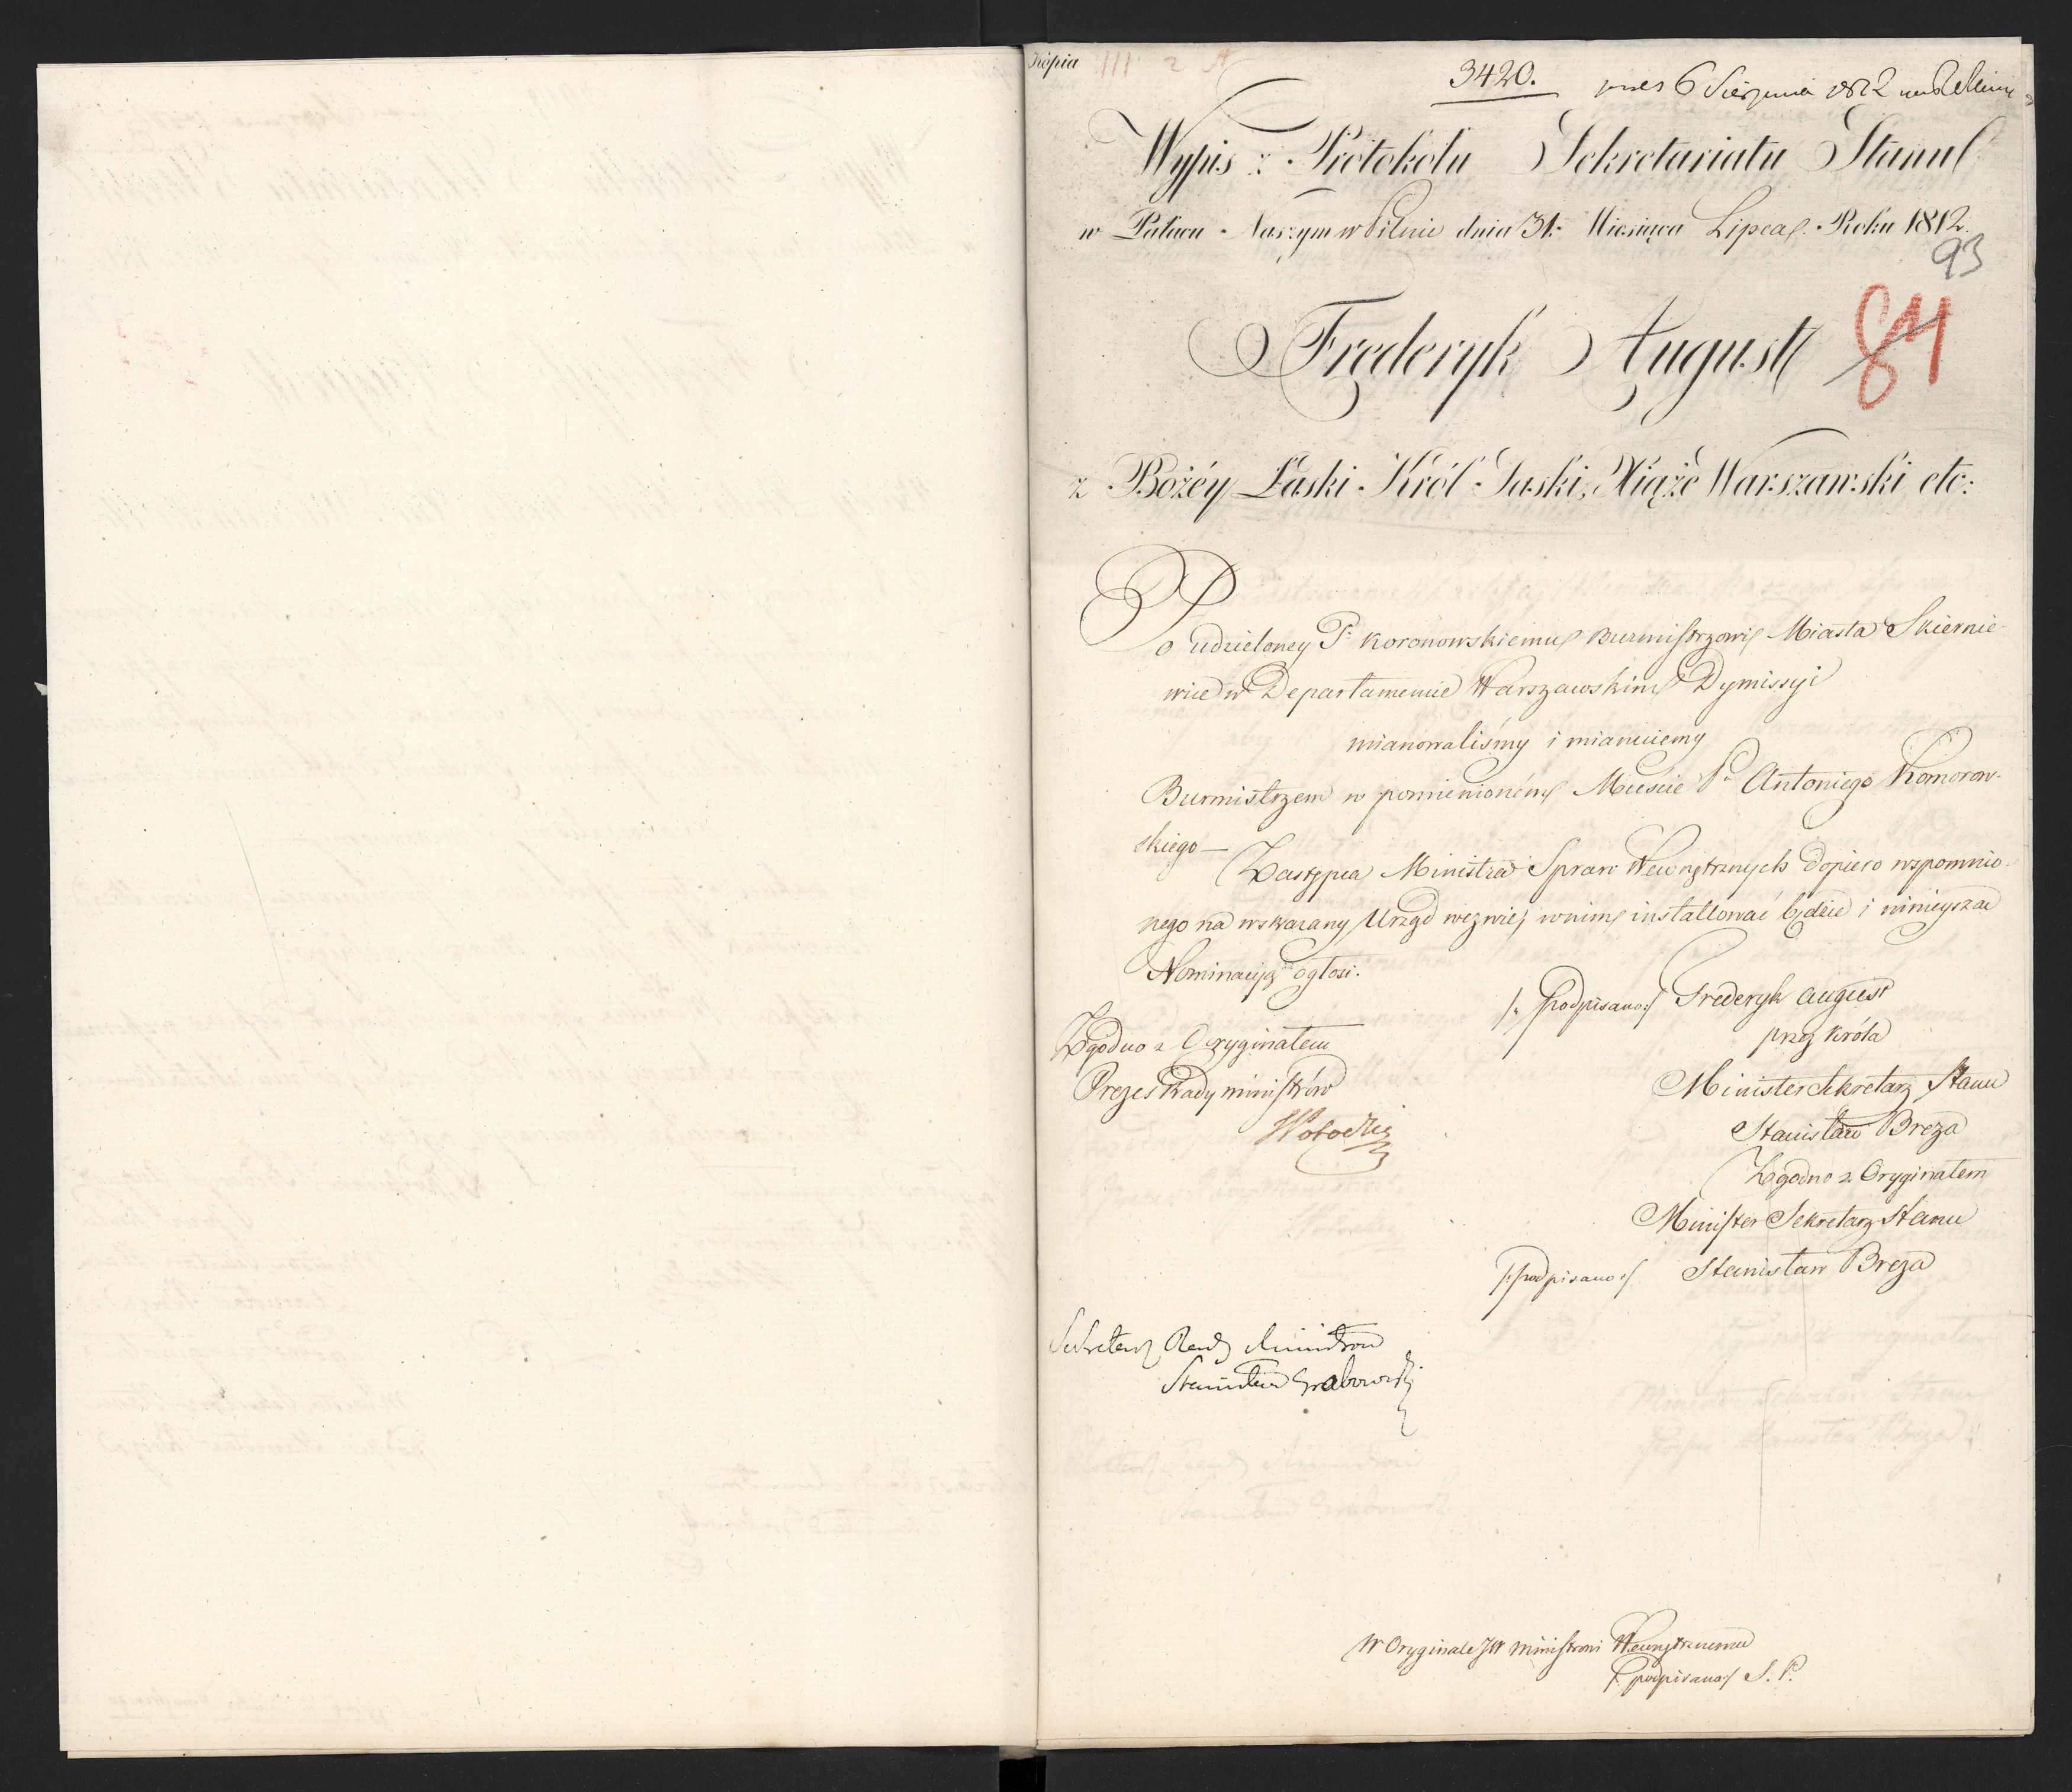 Kopia
3420.
pres 6 Sierpnia 1812
Wypis z Protokołu Sekretariatu Stanu
w Pałacu Naszym w Pilnie dnia 31. Miesiąca Lipca Roku 1812.
93
84
Frederyk August
z Bożéy Łaski Król Saski, Xiąże Warszawski etc:
Po udzieloney P. Koronowskiemu Burmistrzowi Miasta Skiernie-
wic w Departamencie Warszawskim Dymissyi
mianowaliśmy i mianuiemy
Burmistrzem w pomienioném Mieście Pa Antoniego Komorow-
skiego —
Zastępca Ministra Spraw Wewnętrznych dopiero wspomnio-
nego na wskazany Urząd wezwie, w nim installować będzie i ninieyszą
Nominacyą ogłosi.
/: podpisano :/ Frederyk August
przez Króla
Minister Sekretarz Stanu
Stanisław Breza
Zgodno z Oryginałem
Minister Sekretarz Stanu
/: podpisano :/ Stanisław Breza
Zgodno z Oryginałem
Prezes Rady Ministrów
Sekretarz Rady Ministrów
Stanisław Grabowski
W Oryginale JW Ministrowi Wewnętrznemu
/: podpisano :/ S. P.